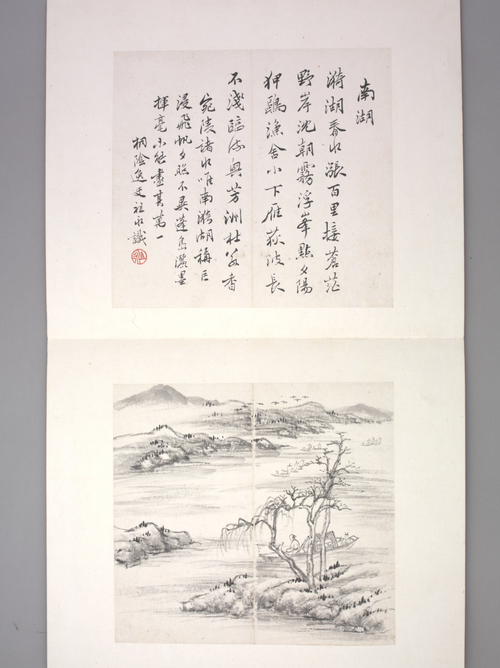 南湖
漪湖春水漲百里接蒼茫
野岸沈朝霧浮峯點夕陽
狎鷗漁舍小下雁荻波長
不淺臨流興芳洲杜若香
宛陵諸水唯南漪湖稱巨
浸飛帆夕照不異蓬島墨
揮毫未能盡其萬一
桐陰逸叟永識